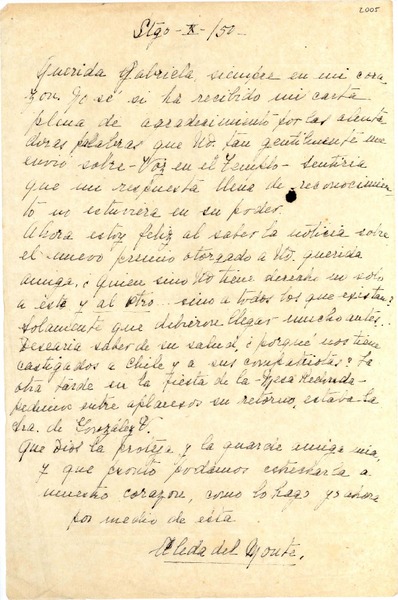 2005
Stgo - X - /50 -
Querida Gabriela, siempre en mi cora-
zon. No sé si ha recibido mi carta
plena de agradecimiento por las alenta-
doras palabras que Ud. tan gentilmente me
envió sobre - Voz en el Templo - Sentiria
que mi respuesta llena de reconocimien-
to no estuviera en su poder.
Ahora estoy feliz al saber la noticia sobre
el nuevo premio otorgado a Ud. querida
amiga. ¿Quien sino Ud tiene derecho no solo
a este y al otro... sino a todos los que existan?
Solamente que debieron llegar mucho antes...
Desearia saber de su salud, ¿porqué nos tiene
castigados a Chile y a sus compatriotas? La
otra tarde en la fiesta de la Mesa Redonda -
pedimos entre aplausos su retorno, estaba la
Sra. de González V.
Que Dios la proteja y la guarde amiga mia,
y que pronto podamos estrecharla a
nuestro corazon, como lo hago yo ahora
por medio de esta.
Aleda del Monte.